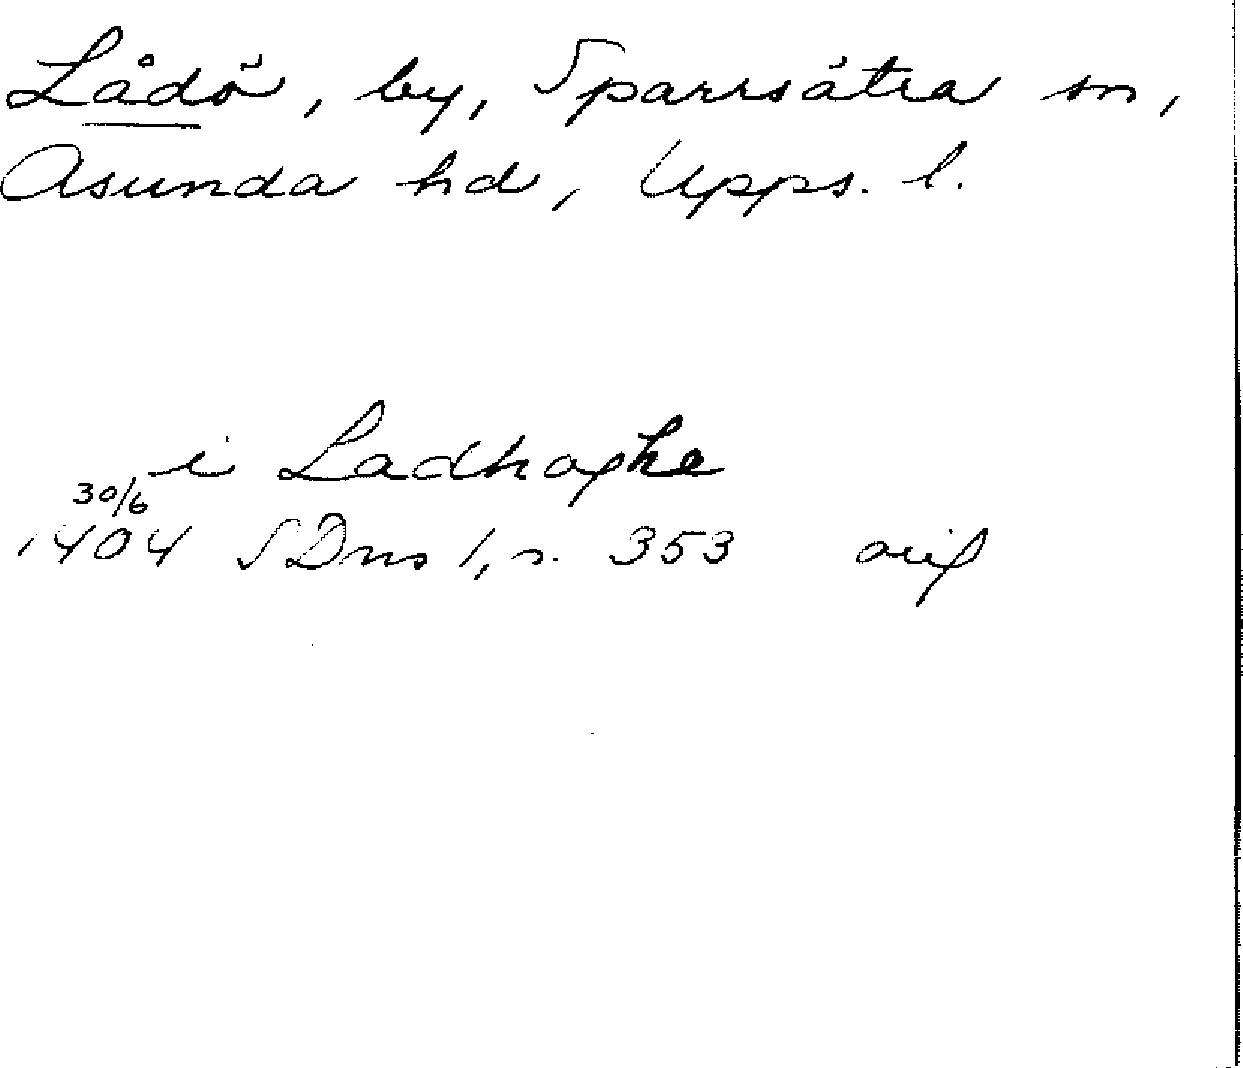 Lådö, by, Sparrsätra sn,
Åsunda hd, Upps. l.
i Ladhoghe
30/6
1404 SDns 1, s. 353 orig